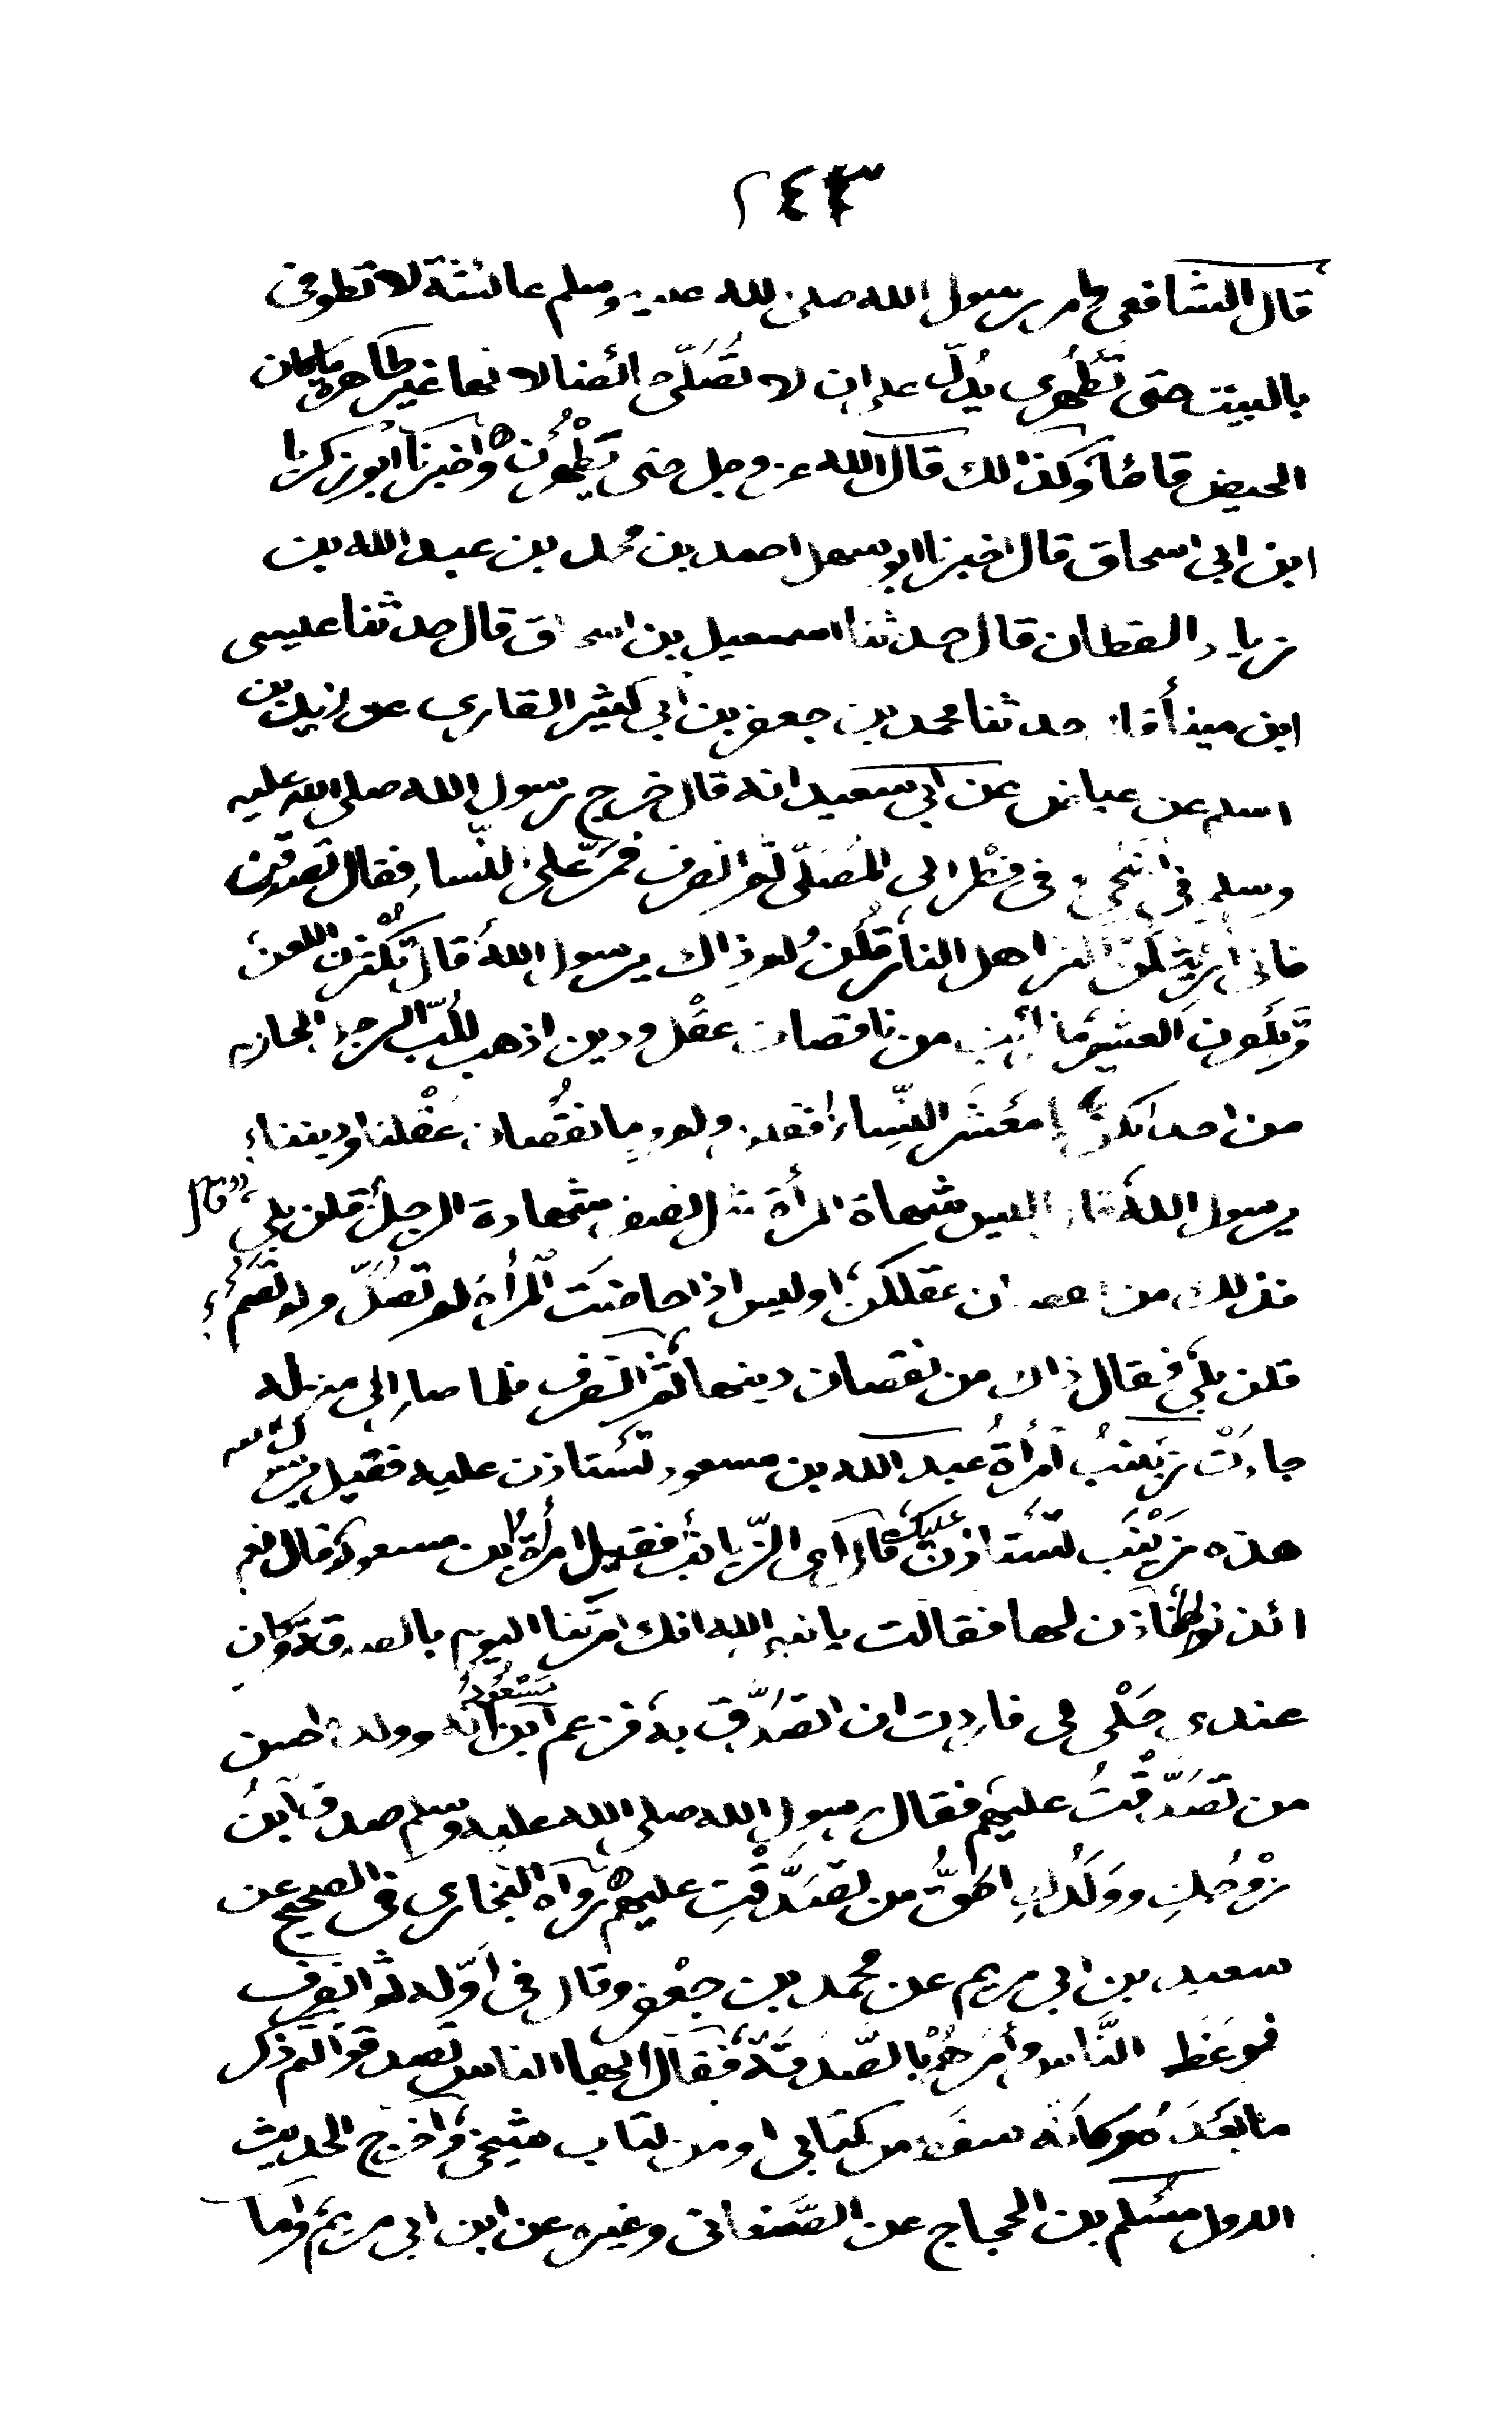 ٢٤٣
قال الشافعي وامر رسول الله صلى الله عليه وسلم عائشة لا تطوفى
بالبيت حتى تَطْهُرى يدُلّ على ان لا تُصَلّى ائضا لانها غير طاهر ماكان
الحيض قائما وكذالك قال الله عز وجل حتى يَطْهُرْن واخبرنا ابو زكريا
ابن ابى اسحاق قال اخبرنا ابو سهل احمد بن محمد بن عبد الله بن
زياد القطان قال حدثنا اسمعيل بن اسحاق قال حدثنا عيسى
ابن مينأ قال حدثنا محمد بن جعفر بن ابى كثير القارى عن زيد بن
اسلم عن عياض عن ابى سعيد انه قال خرج رسول الله صلى الله عليه
وسلم فى اضحى او فى فِطْر الى المُصَلّى ثم انصرف فمَرّ على النّساء فقال تصدقن
فانى أُريتُكُنّ اكثر اهل النار قلْن ولم ذاك يرسول الله قال تُكْثِرن اللعن
وتَكفُرن العشير ما رأيت من ناقصات عقْل ودين اذهب لِلُبّ الرجل الحازم
من احداكنّ يا معْشَر النِّساء فقلن ولم وما نقُصان عَقْلنا وديننا
يرسول الله قال اليس شهاة المرأة مثل نصف شهادة الرجل قلن بلى قال
فذلك من نقصان عقلكنّ اوليس اذا حاضَت المرأة لم تصُلّ ولم تصم
قلن بلى فقال ذاك من نقصان دينها ثم انصرف فلما صار الى منزله
جاءتْ زينبُ امرأةُ عبد الله بن مسعود تستاذن عليه فقيل يرسول الله
هذه زَيْنَب تستاذن عليك قال اى الزّيانب فقيل امرأة ابن مسعود قال نعم
ائذنوا لها فاذن لها فقالت يا نبى الله انك امرتنا اليوم بالصدقة وكان
عندى حَلْى لى فاردت ان اتصدّق به فزعم ابن مَسْعُود انه وولده احق
من تَصَدّقْتُ عليهم فقال رسول الله صلى الله عليه وسلم صدق ابنُ
زوْجُكِ ووَلَدُكِ احَقُّ من تصَدَّقْتِ عليهم رواه البخارى فى الصحيح عن
سعيد بن ابى مريم عن محمد بن جعْفر وقال فى اوّله ثم انصرف
فوعَظ النَّاس وأمَرهُمْ بالصَّدقَة فقال ايها الناس تصدقوا ثم ذكر
ما بعْدَه وكأنه سقَط من كتابى او من كتاب شيخى واخرج الحديث
الاول مسْلم بن الحجاج عن الصَّنعانى وغيره عن ابن ابى مريم واما